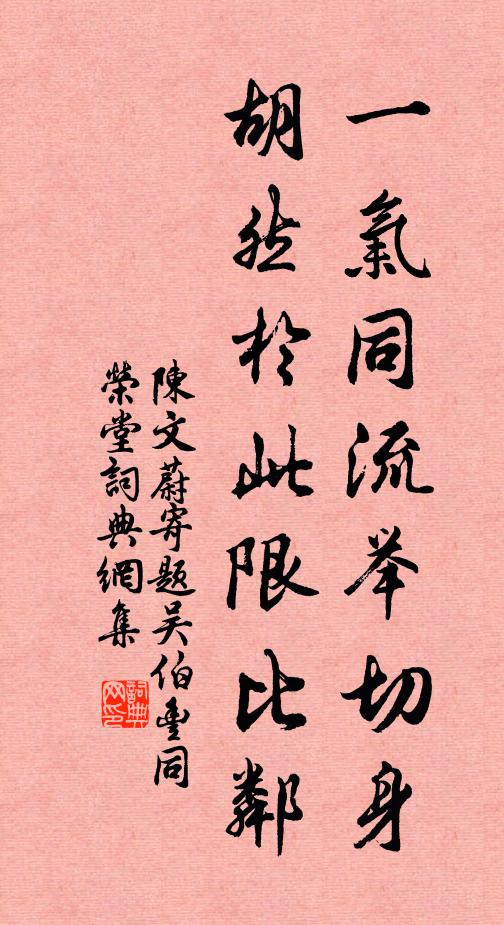 一氣同流举切身
胡然於此限比鄰
陳文蔚寄题吴伯豐同
榮堂詞典網集
詞典网印